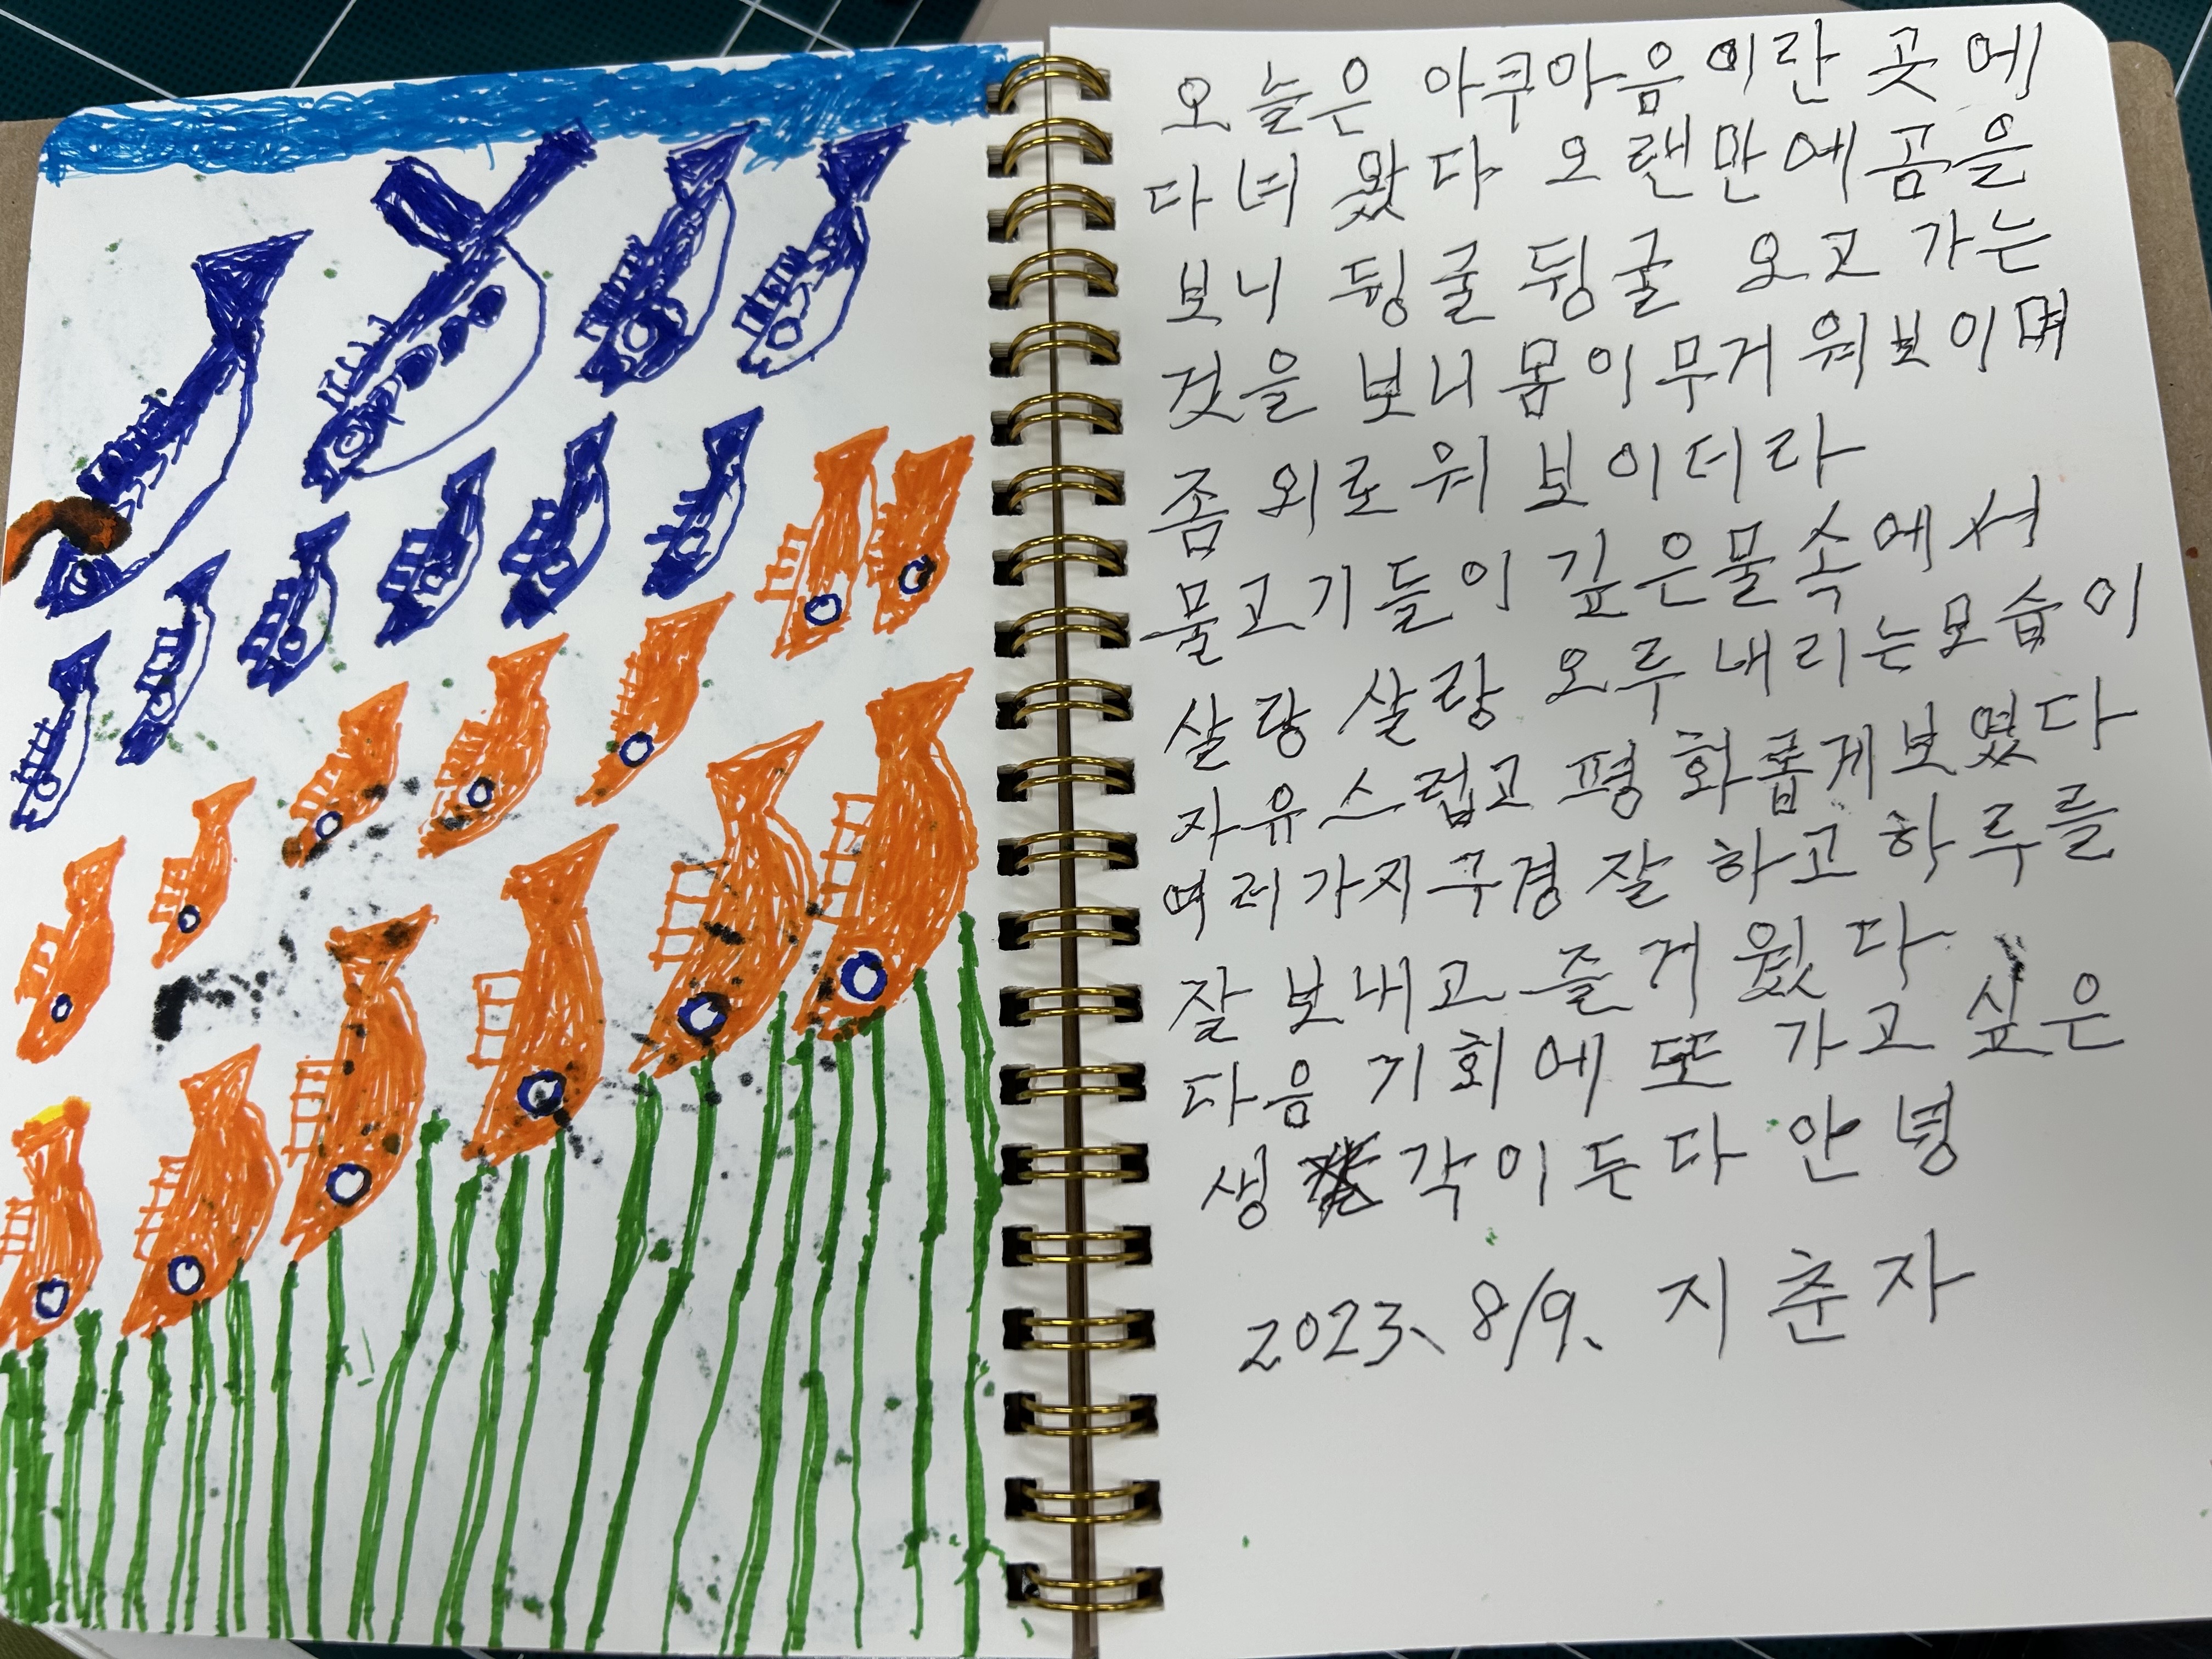 오늘은 아쿠아움이란 곳에
다녀 왔다 오랜만에 곰을
보니 뒹굴 뒹굴 오고 가는
것을 보니 몸이 무거워보이며
좀 외로워 보이더라
물고기들이 깊은물속에서
살랑 살랑 오루내리는모습이
자유스럽고 평화롭게보였다
여러가지구경 잘하고 하루를
잘 보내고 즐거웠다
다음 기회에 또 가고 싶은
생 각이든다 안녕
2023、8/9、 지춘자